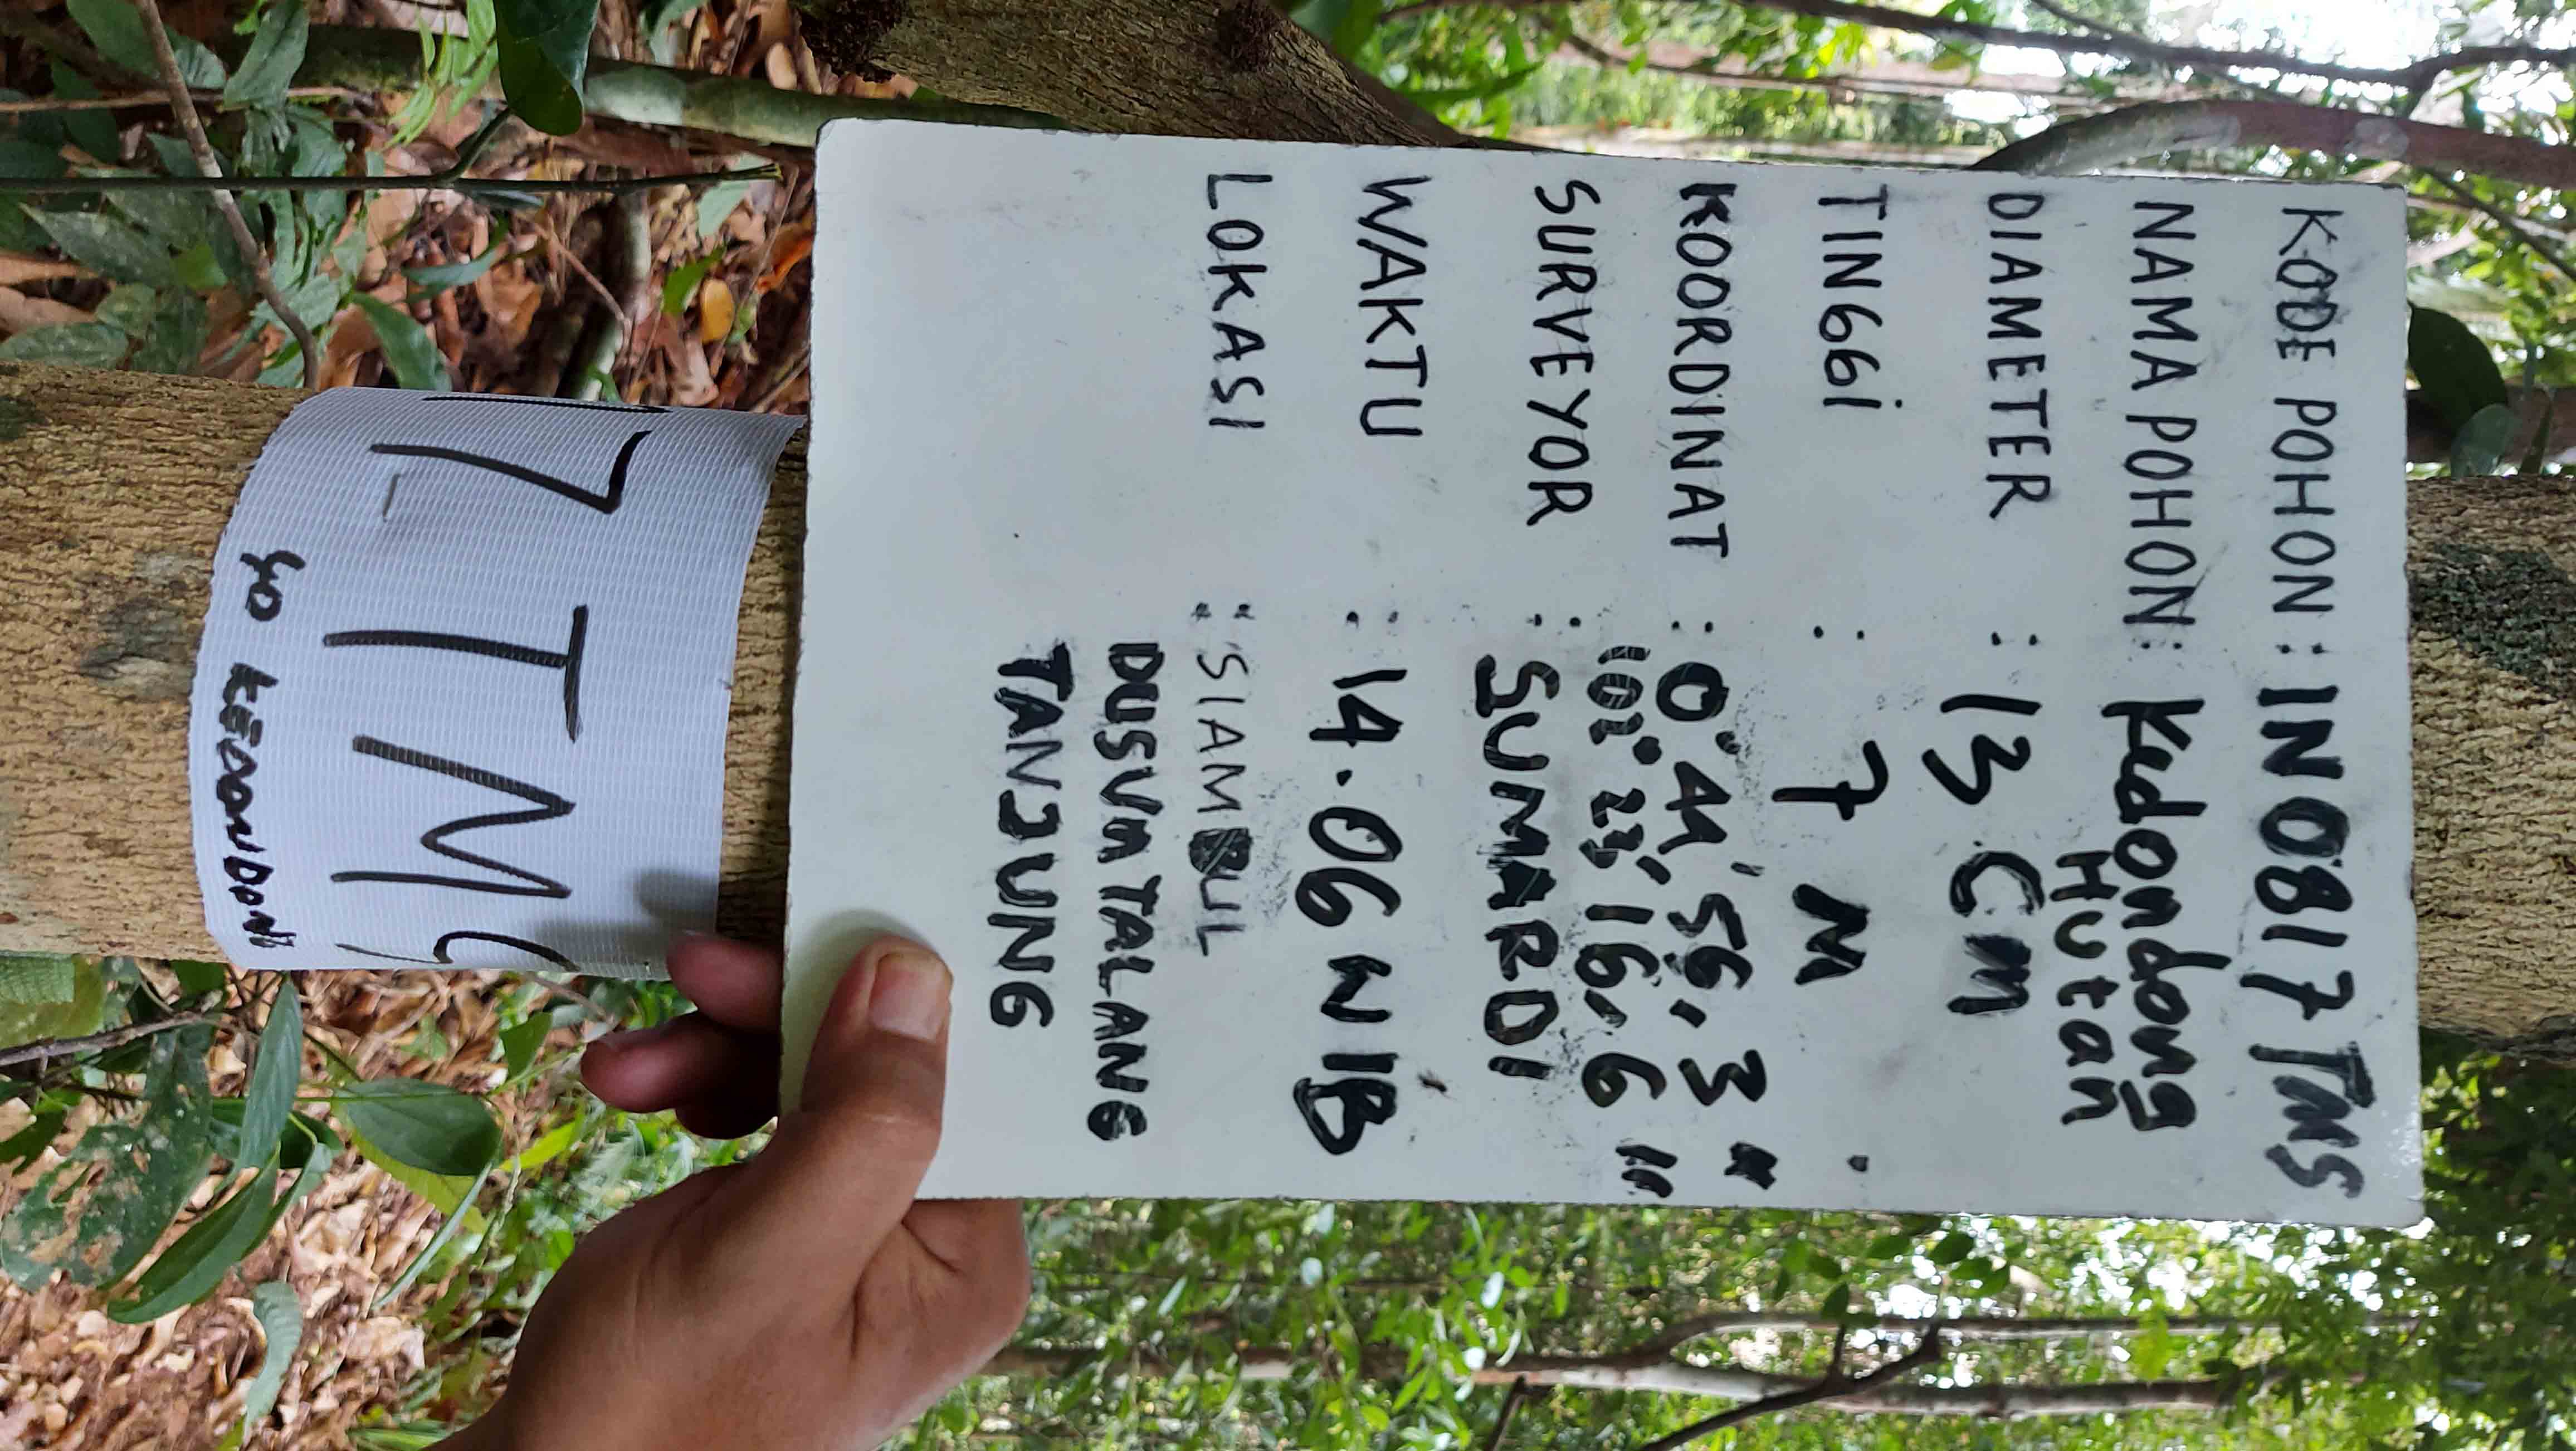 KODE POHON : IN 0817 TMS
NAMA POHON : Kedondong
Hutan
DIAMETER : 13 Cm
TINGGi : 7 M
KOORDINAT : 0° 44' 56, 3 "
102° 23' 16, 6 "
SURVEYOR : SUMARDI
WAKTU : 14.06 W IB
LOKASI : SIAMBUL
DUSUN TALANG
TANJUNG
17 TMS
KEDONDONG